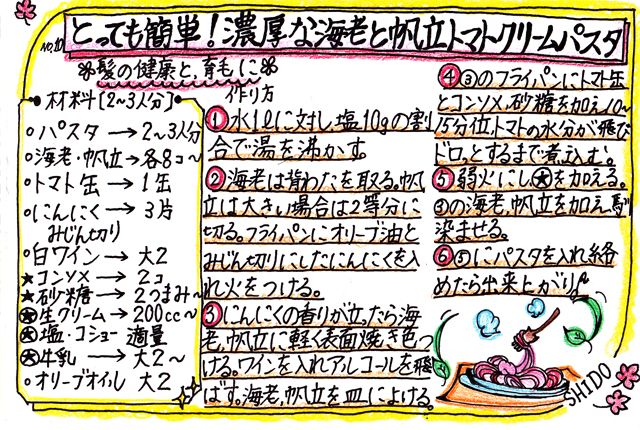 NO.10
とっても簡単！濃厚な海老と帆立トマトクリームパスタ
髪の健康と、育毛に
材料〔2〜3人分〕
パスタ → 2〜3人分
海老・帆立 → 各8コ〜
トマト缶 → 1缶
にんにく → 3片
みじん切り
白ワイン → 大2
★コンソメ → 2コ
★砂糖 → 2つまみ〜
★生クリーム → 200cc〜
★塩・コショー 適量
★牛乳 → 大2〜
オリーブオイル 大2
作り方
① 水1Lに対し、塩10gの割
合で湯を沸かす。
② 海老は背わたを取る。帆
立は大きい場合は2等分に
切る。フライパンにオリーブ油と
みじん切りにしたにんにくを入
れ火をつける。
③ にんにくの香りが立ったら海
老、帆立に軽く表面焼き色つ
ける。ワインを入れアルコールを飛
ばす。海老、帆立を皿によける。
④ ③のフライパンにトマト缶
とコンソメ、砂糖を加え10〜
15分位、トマトの水分が飛び
ドロっとするまで煮込む。
⑤ 弱火にし★を加える。
③の海老、帆立を加え馴
染ませる。
⑥ ⑤にパスタを入れ絡
めたら出来上がり
SHIDO